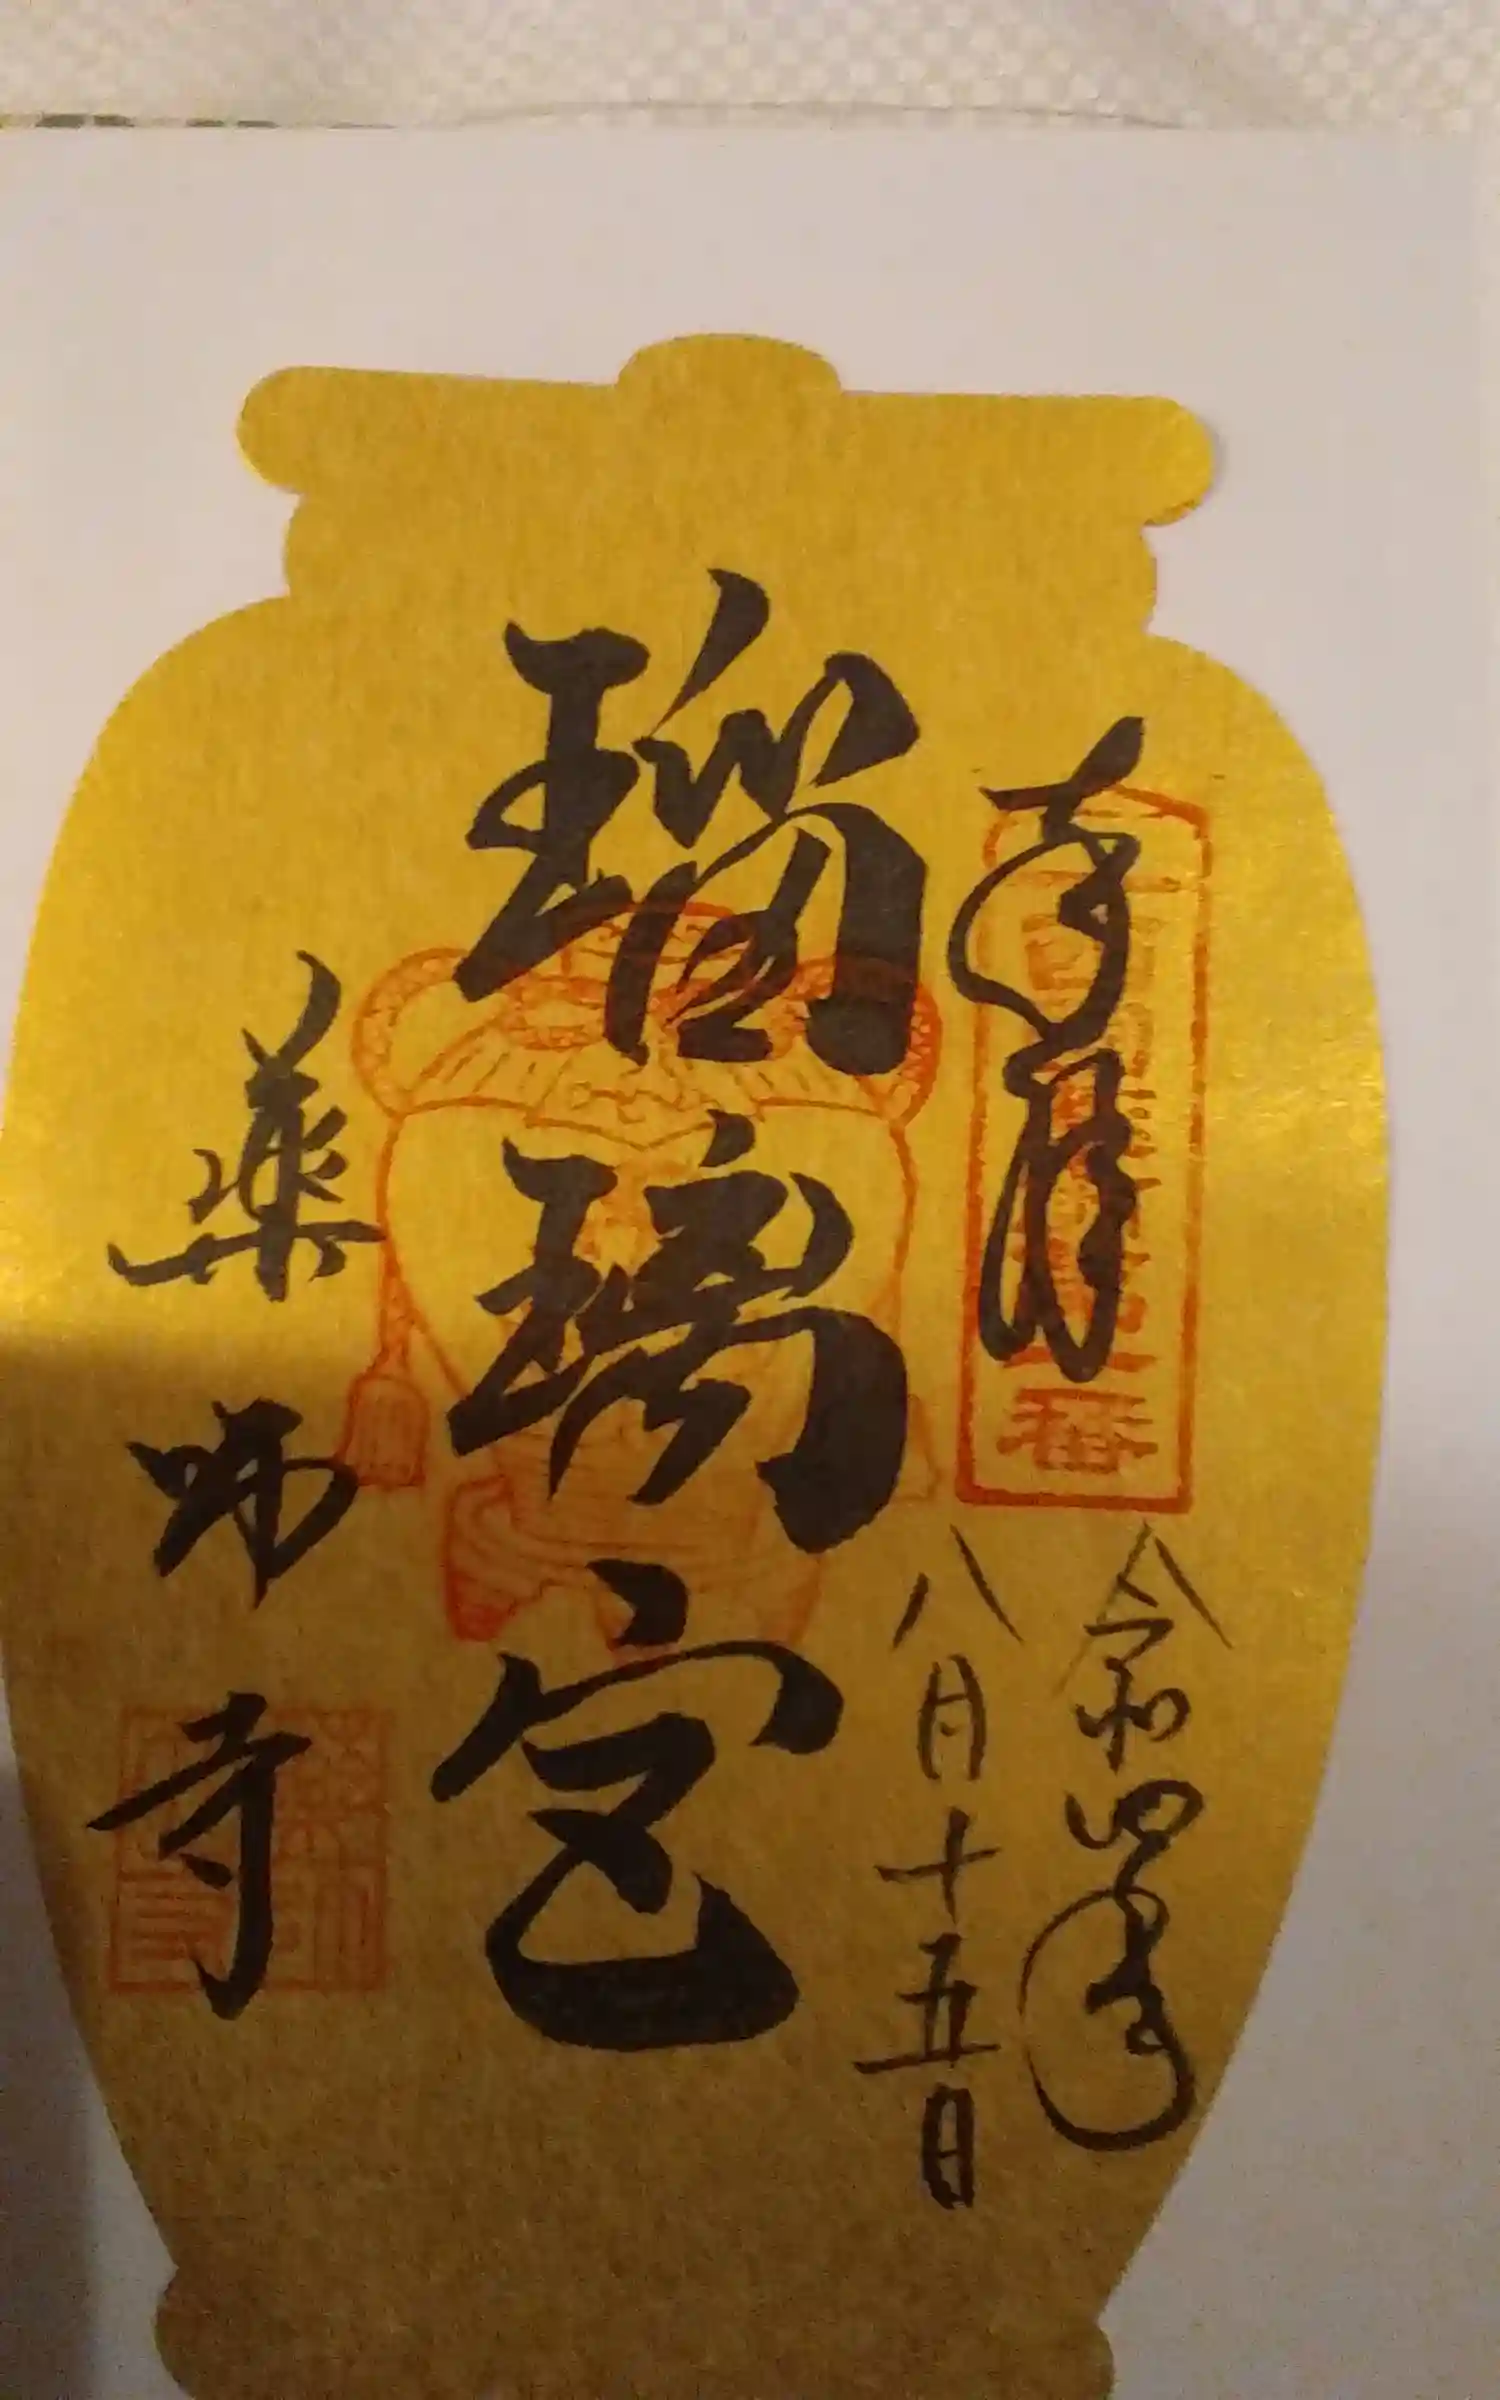 奉拝
令和四年
八月十五日
瑠璃宮
薬師寺